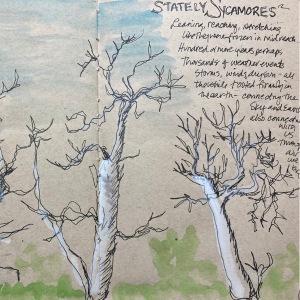 STATELY SICAMORES
Leaning, reaching, stretching
like they were frozen in mid reach
Hundred or more years, perhaps,
Thousands of weather events
Storms, winds, - all
the while rooted firmly in
the earth - connecting the
Sky and Earth
also connecting
us